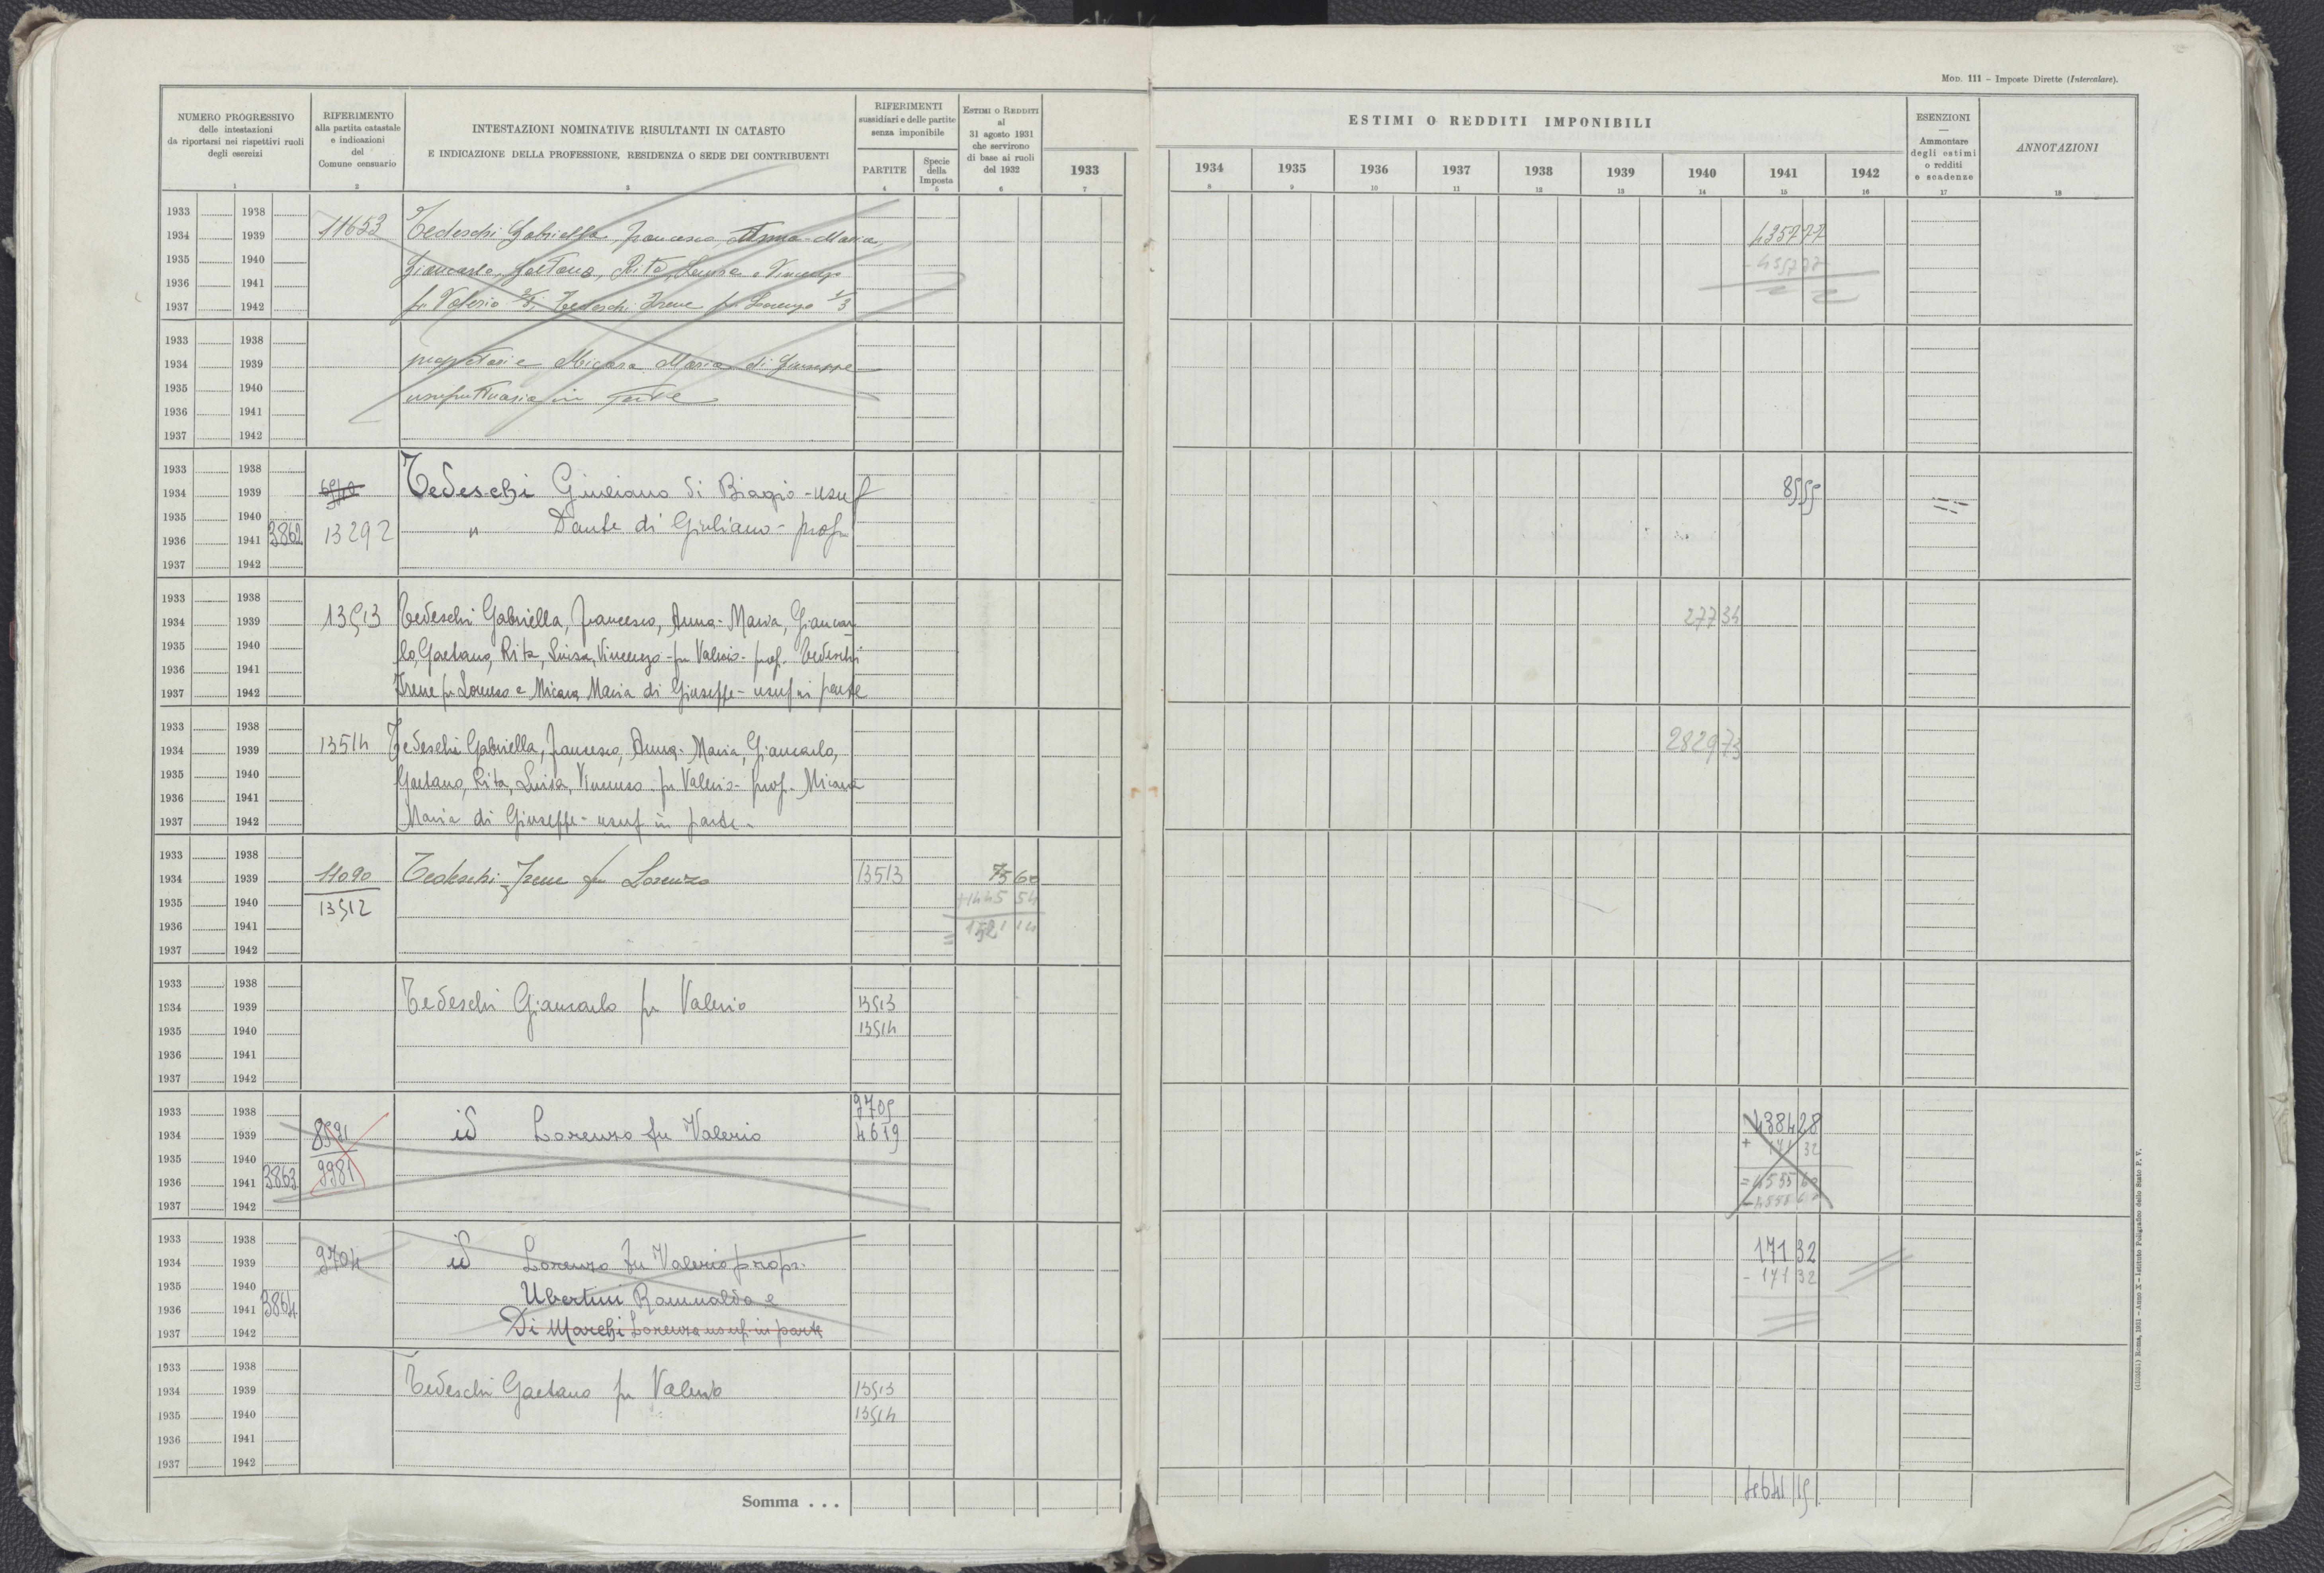 MOD. 111 – Imposte Dirette (Intercalare).
NUMERO PROGRESSIVO
delle intestazioni
da riportarsi nei rispettivi ruoli
degli esercizi
1
RIFERIMENTO
alla partita catastale
e indicazioni
del
Comune censuario
2
INTESTAZIONI NOMINATIVE RISULTANTI IN CATASTO
E INDICAZIONE DELLA PROFESSIONE, RESIDENZA O SEDE DEI CONTRIBUENTI
3
RIFERIMENTI
sussidiari e delle partite
senza imponibile
PARTITE
4
Specie
della
Imposta
5
ESTIMI O REDDITI
al
31 agosto 1931
che servirono
di base ai ruoli
del 1932
6
1933
7
ESTIMI O REDDITI IMPONIBILI
1934 1935 1936 1937 1938 1939 1940 1941 1942
8 9 10 11 12 13 14 15 16
ESENZIONI
—
Ammontare
degli estimi
o redditi
e scadenze
17
ANNOTAZIONI
18
1933 1938
1934 1939 11653 Tedeschi Gabriella, francesco, Anna-Maria, 4357 77
1935 1940 Giancarlo, Gaetano, Rita, Luisa e Vincenzo
1936 1941
1937 1942 fu Valerio 2/3; Tedeschi Irene fu Lorenzo 1/3
1933 1938
1934 1939 proprietari e Micara Maria di Giuseppe
1935 1940 usufruttuaria in parte
1936 1941
1937 1942
1933 1938
1934 1939 Tedeschi Giuliano di Biagio - usuf 85 55
1935 1940
1936 1941 3862 13292 " Dante di Giuliano - prop
1937 1942
1933 1938
1934 1939 13513 Tedeschi Gabriella, francesco, Anna-Maria, Giancar 277 34
1935 1940 lo, Gaetano, Rita, Luisa, Vincenzo - fu Valerio - prop. Tedeschi
1936 1941
1937 1942 Irene fu Lorenzo e Micara Maria di Giuseppe - usuf in parte
1933 1938
1934 1939 13514 Tedeschi Gabriella, francesco, Anna-Maria, Giancarlo, 2829 73
1935 1940 Gaetano, Rita, Luisa, Vincenzo fu Valerio - prop. Micara
1936 1941
1937 1942 Maria di Giuseppe - usuf in parte.
1933 1938
1934 1939 11090 Tedeschi Irene fu Lorenzo 13513 75 60
1935 1940 13512 +1445 54
1936 1941 = 1521 14
1937 1942
1933 1938
1934 1939 Tedeschi Giancarlo fu Valerio 13513
1935 1940 13514
1936 1941
1937 1942
1933 1938 9705
1934 1939 8591 id Lorenzo fu Valerio 4619 4384 28
1935 1940 + 171 32
1936 1941 3863 9981 = 4555 60
1937 1942 - 4555 60
1933 1938
1934 1939 9704 id Lorenzo fu Valerio propr. 171 32
1935 1940 - 171 32
1936 1941 3864 Ubertini Romualda e
1937 1942 Di Marchi Lorenza usuf. in parte
1933 1938
1934 1939 Tedeschi Gaetano fu Valerio 13513
1935 1940 13514
1936 1941
1937 1942
Somma . . .